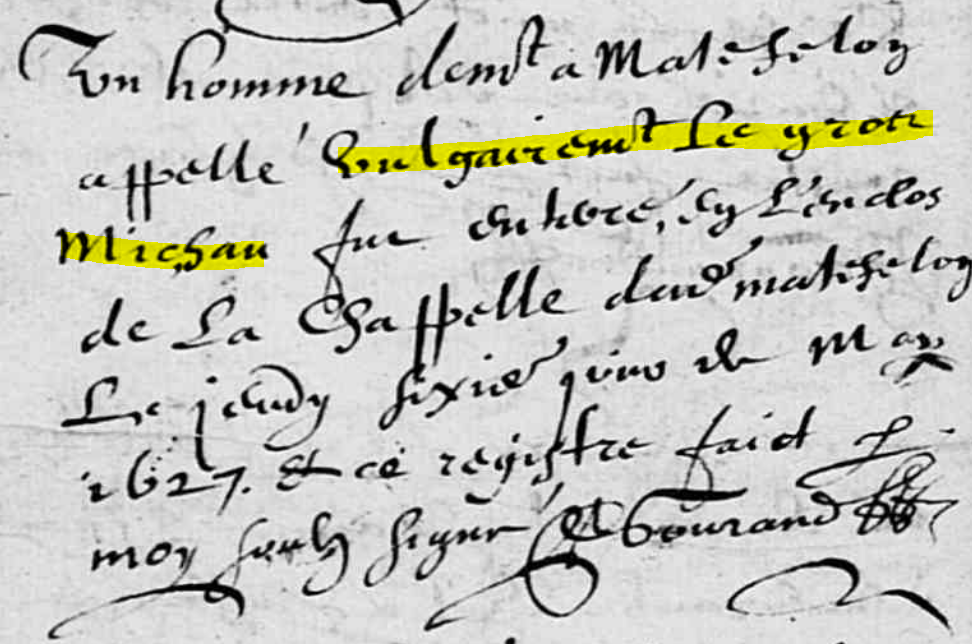 Un homme demt a Mathefelon
appellé Vulgairemt Le gros
Michau fut enterré, en L'enclos
de La Chappelle dud mathefelon
Le jeudy sixie jour de May
1627. Et ce registre faict p.
moy soubz signé